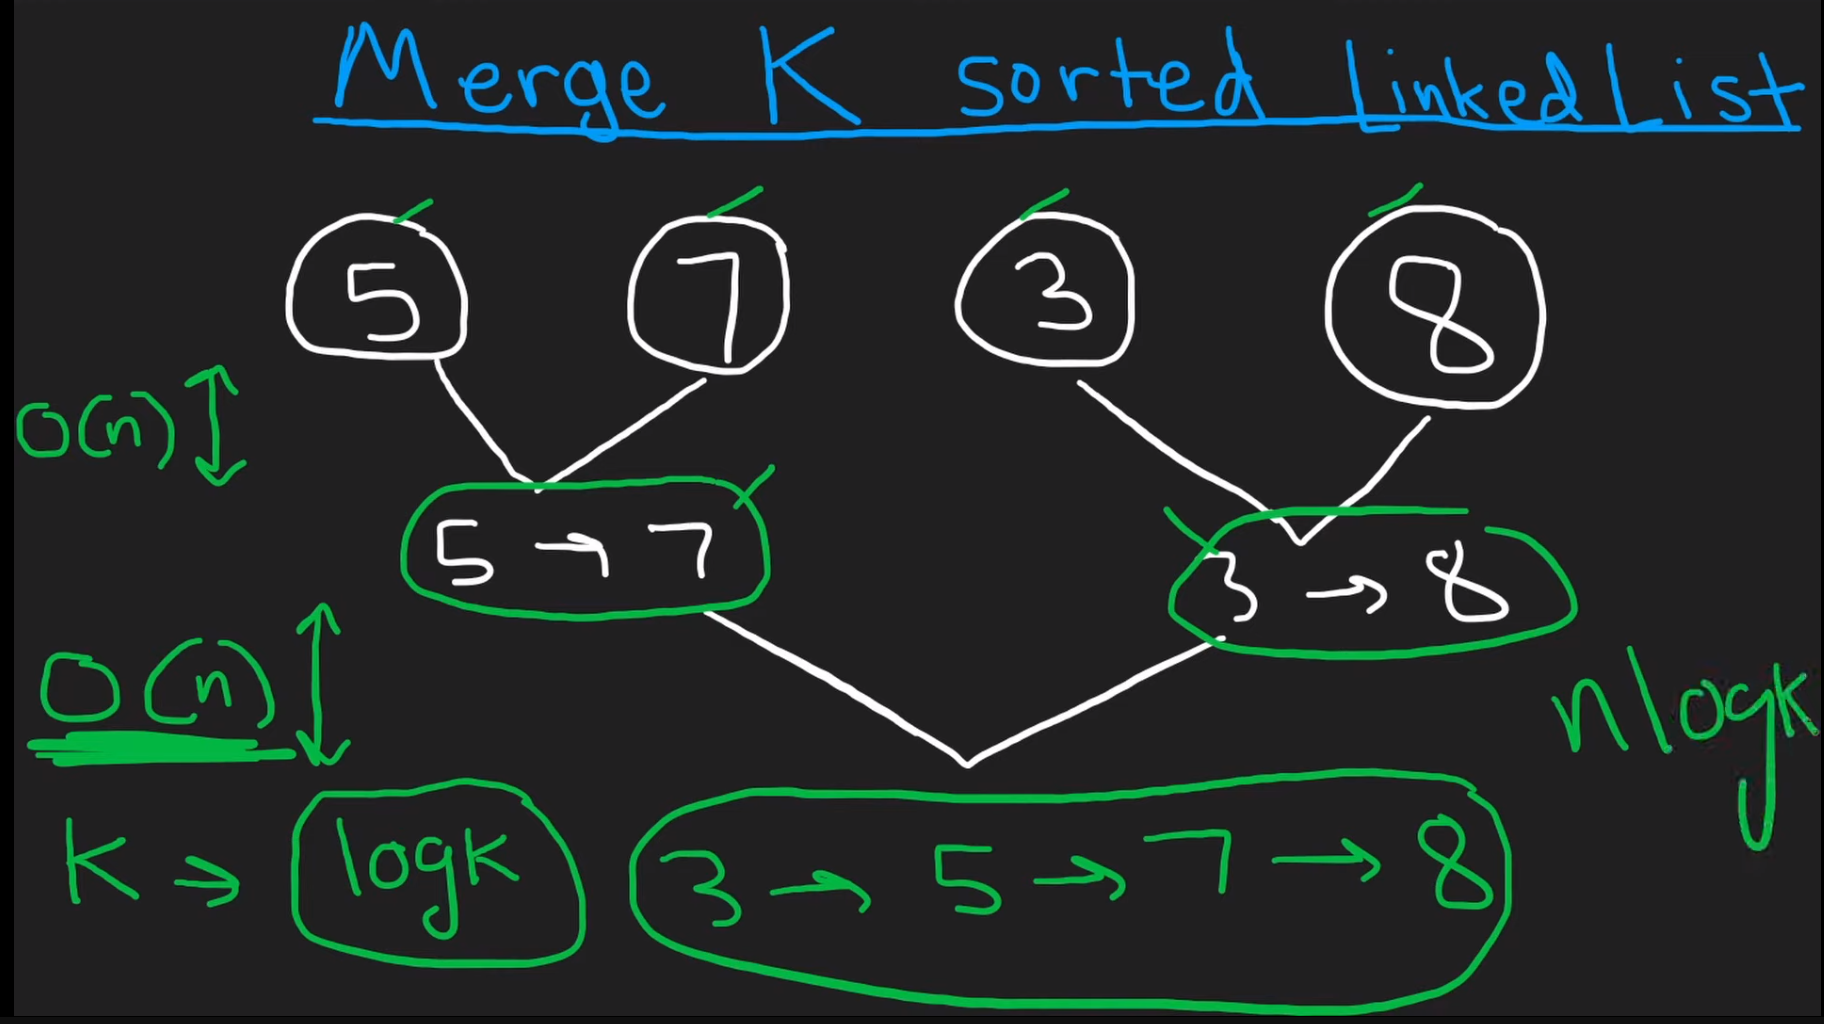 Merge K sorted LinkedList
5 7 3 8
O(n)
5 → 7 3 → 8
O(n)
nlogk
K → logk
3 → 5 → 7 → 8